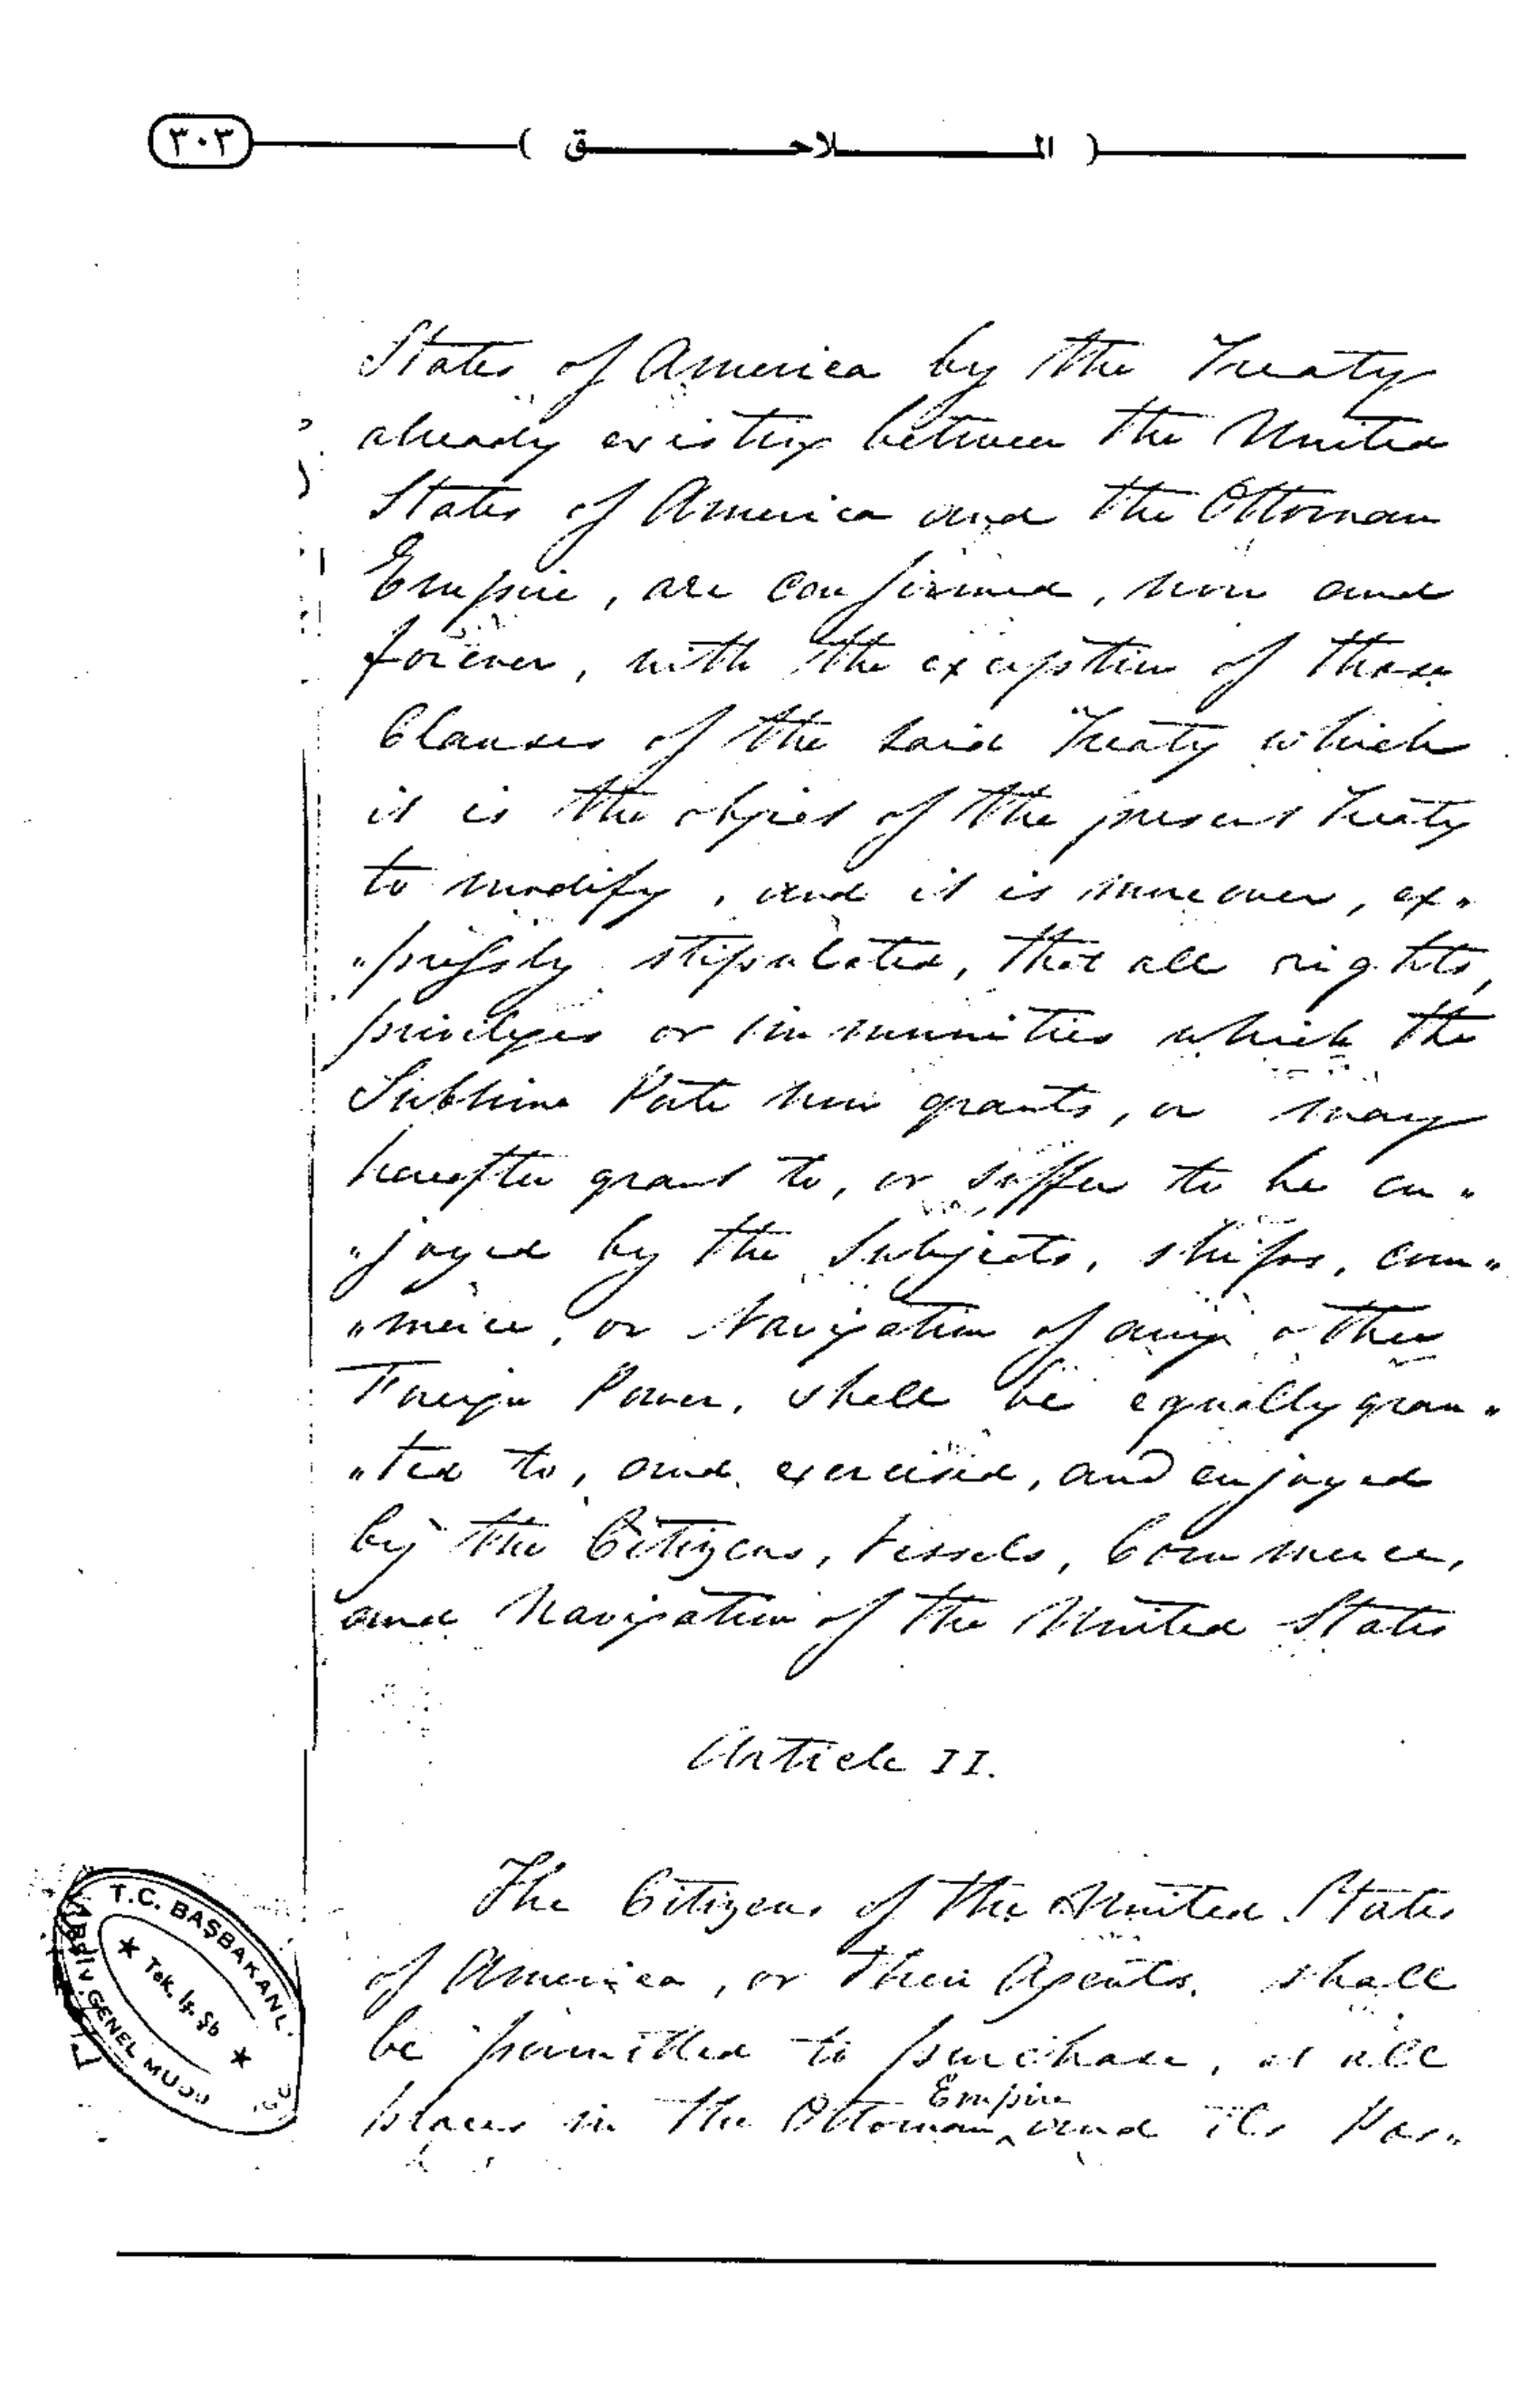 ٣٠٣
( الملاحق )
States of America by the Treaty
already existing between the United
States of America and the Ottoman
Empire, are confirmed, now and
forever, with the exception of those
Clauses of the said Treaty which
it is the object of the present Treaty
to modify, and it is moreover, ex„
„pressly stipulated, that all rights,
privileges or immunities which the
Sublime Porte now grants, or may
hereafter grant to, or suffer to be en„
„joyed by the Subjects, ships, com„
„merce, or Navigation of any other
Foreign Power, shall be equally gran„
„ted to, and exercised, and enjoyed
by the Citizens, Vessels, Commerce,
and Navigation of the United States
Article II.
The Citizens of the United States
of America, or their Agents, shall
be permitted to purchase, at all
places in the Ottoman Empire and its Pos„
T.C. BAŞBAKANL
ARŞİV GENEL MÜDÜ
★ Tek. İş. Şb ★